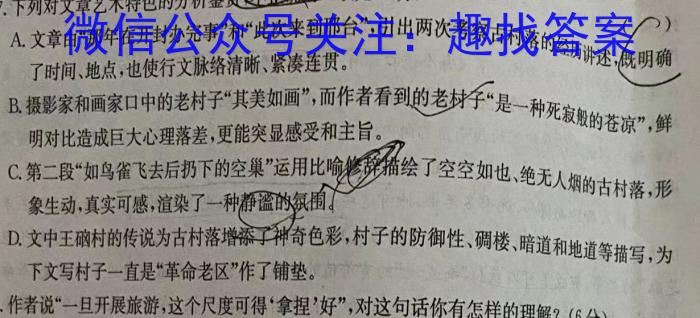 7.下列对文章艺术特色的分析鉴赏
微信公众号关注：趣找答案
A.文章由“ 年在开封办元事”和“此次来到邢台”，引出两次考察古村落的经历讲述,既明确
了时间、地点,也使行文脉络清晰、紧凑连贯。
B.摄影家和画家口中的老村子“其美如画”,而作者看到的老村子“是一种死寂般的苍凉”,鲜
明对比造成巨大心理落差,更能突显感受和主旨。
C.第二段“如鸟雀飞去后扔下的空巢”运用比喻修辞描绘了空空如也、绝无人烟的古村落,形
象生动,真实可感,渲染了一种静谧的氛围。
D.文中王硇村的传说为古村落增添了神奇色彩,村子的防御性、碉楼、暗道和地道等描写,为
下文写村子一直是“革命老区”作了铺垫。
.作者说“一旦开展旅游,这个尺度可得‘拿捏’好”,对这句话你有怎样的理解?(6分)